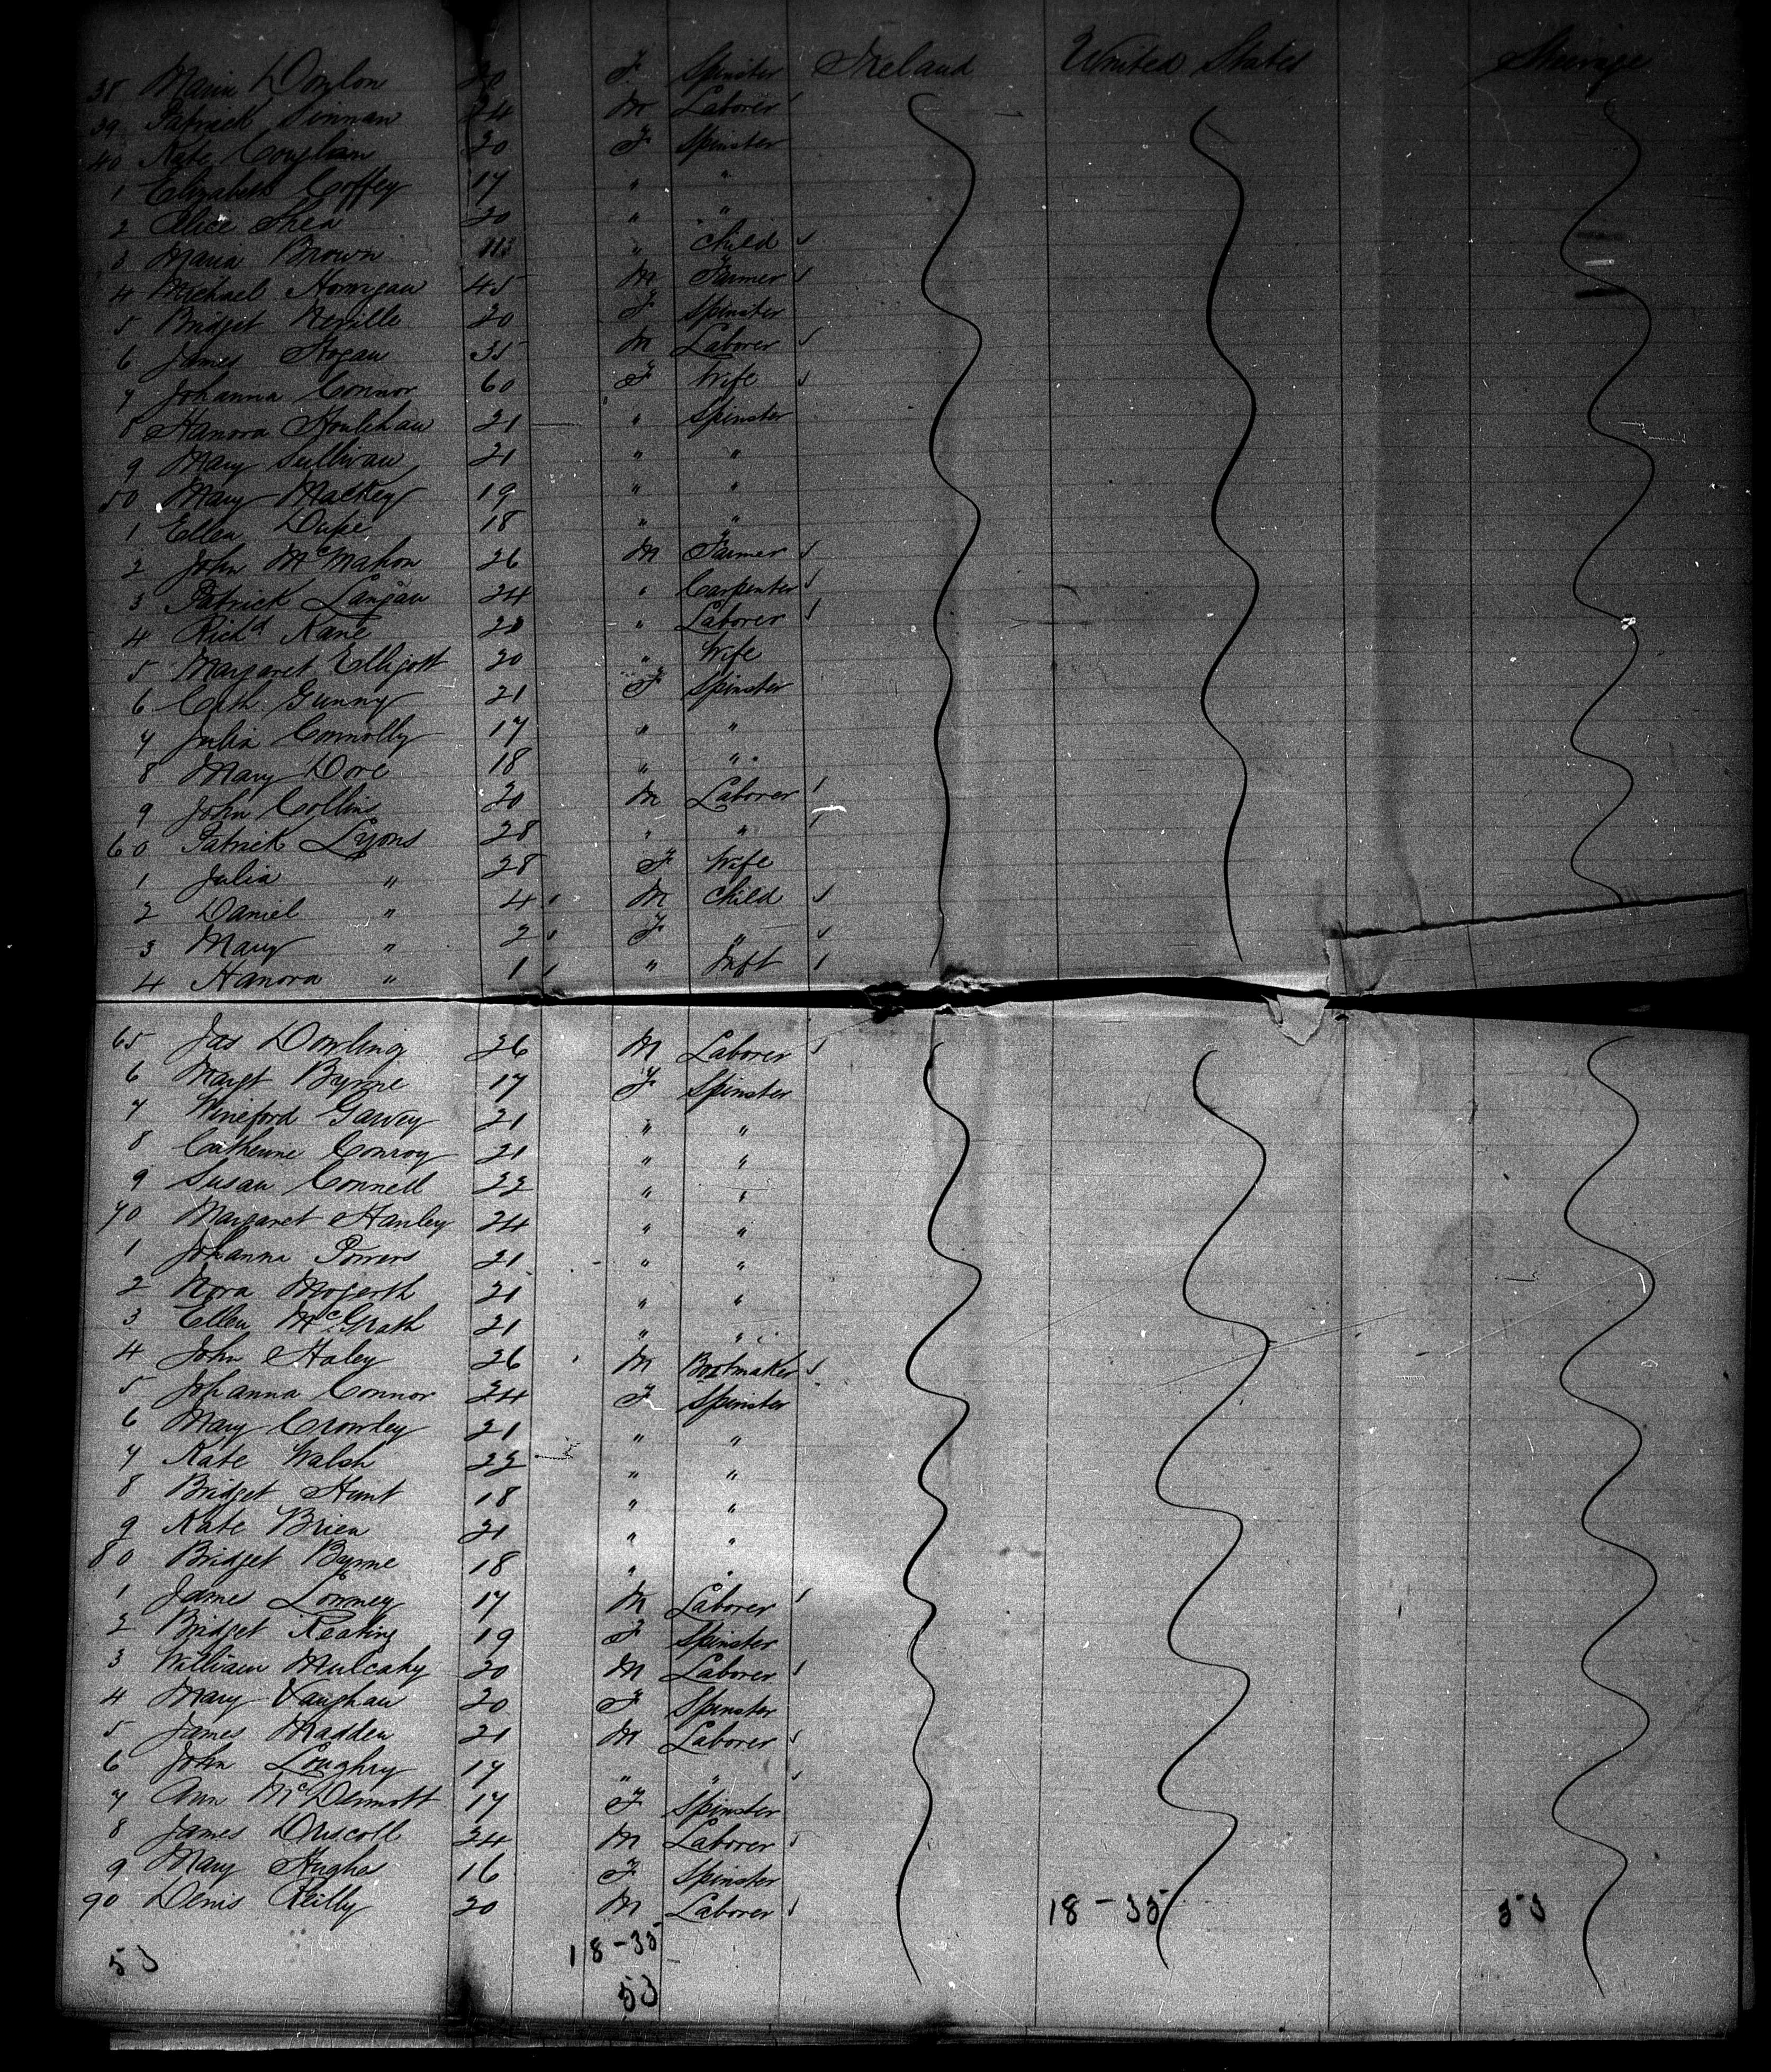 38 Maria 20 F Spinster Ireland United States Steerage
39 Patrick 24 M Laborer
40 Kate Coughlan 20 F Spinster
1 Elizabeth Coffey 17 " "
2 Alice Shea 20 " "
3 Maria Brown " Child
4 Michael Horrigan 45 M Farmer
5 Bridget Neville 20 F Spinster
6 James Hogan 35 M Laborer
7 Johanna Connor 60 F Wife
8 Hanora Houlihan 21 " Spinster
9 Mary Sullivan 21 " "
50 Mary Mackey 19 " "
1 Ellen 18 " "
2 John McMahon 26 M Farmer
3 Patrick Langan 24 " Carpenter
4 Richd Kane " Laborer
5 Margaret Elligott 20 " Wife
6 Cath Gunny 21 F Spinster
7 Julia Connolly 17 " "
8 Mary Dore 18 " "
9 John Collins 20 M Laborer
60 Patrick Lyons 28 " "
1 Julia " 28 F Wife
2 Daniel " 4 M Child
3 Mary " 2 F "
4 Hanora " 1 " Inft
65 Jas Dowling 26 M Laborer
6 Margt Byrne 17 F Spinster
7 Wineford Garvey 21 " "
8 Catherine Conroy 21 " "
9 Susan Connell 22 " "
70 Margaret Hanley 24 " "
1 Johanna Powers 21 " "
2 Nora 21 " "
3 Ellen McGrath 21 " "
4 John Haley 26 M Bootmaker
5 Johanna Connor 24 F Spinster
6 Mary Crowley 21 " "
7 Kate Walsh 22 " "
8 Bridget Hunt 18 " "
9 Kate Brien 21 " "
80 Bridget Byrne 18 " "
1 James Lowney 17 M Laborer
2 Bridget Keating 19 F Spinster
3 William Mulcahy 20 M Laborer
4 Mary Vaughan 20 F Spinster
5 James Madden 21 M Laborer
6 John Loughry 17 " "
7 Ann McDermott 17 F Spinster
8 James Driscoll 24 M Laborer
9 Mary Hughes 16 F Spinster
90 Denis Reilly 20 M Laborer 18-35 53
53 18-35
53